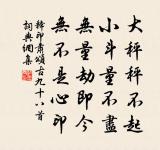 大秤秤不起
小斗量不盡
無量劫即今
無不是心印
釋印肅頌古九十八首
詞典網集